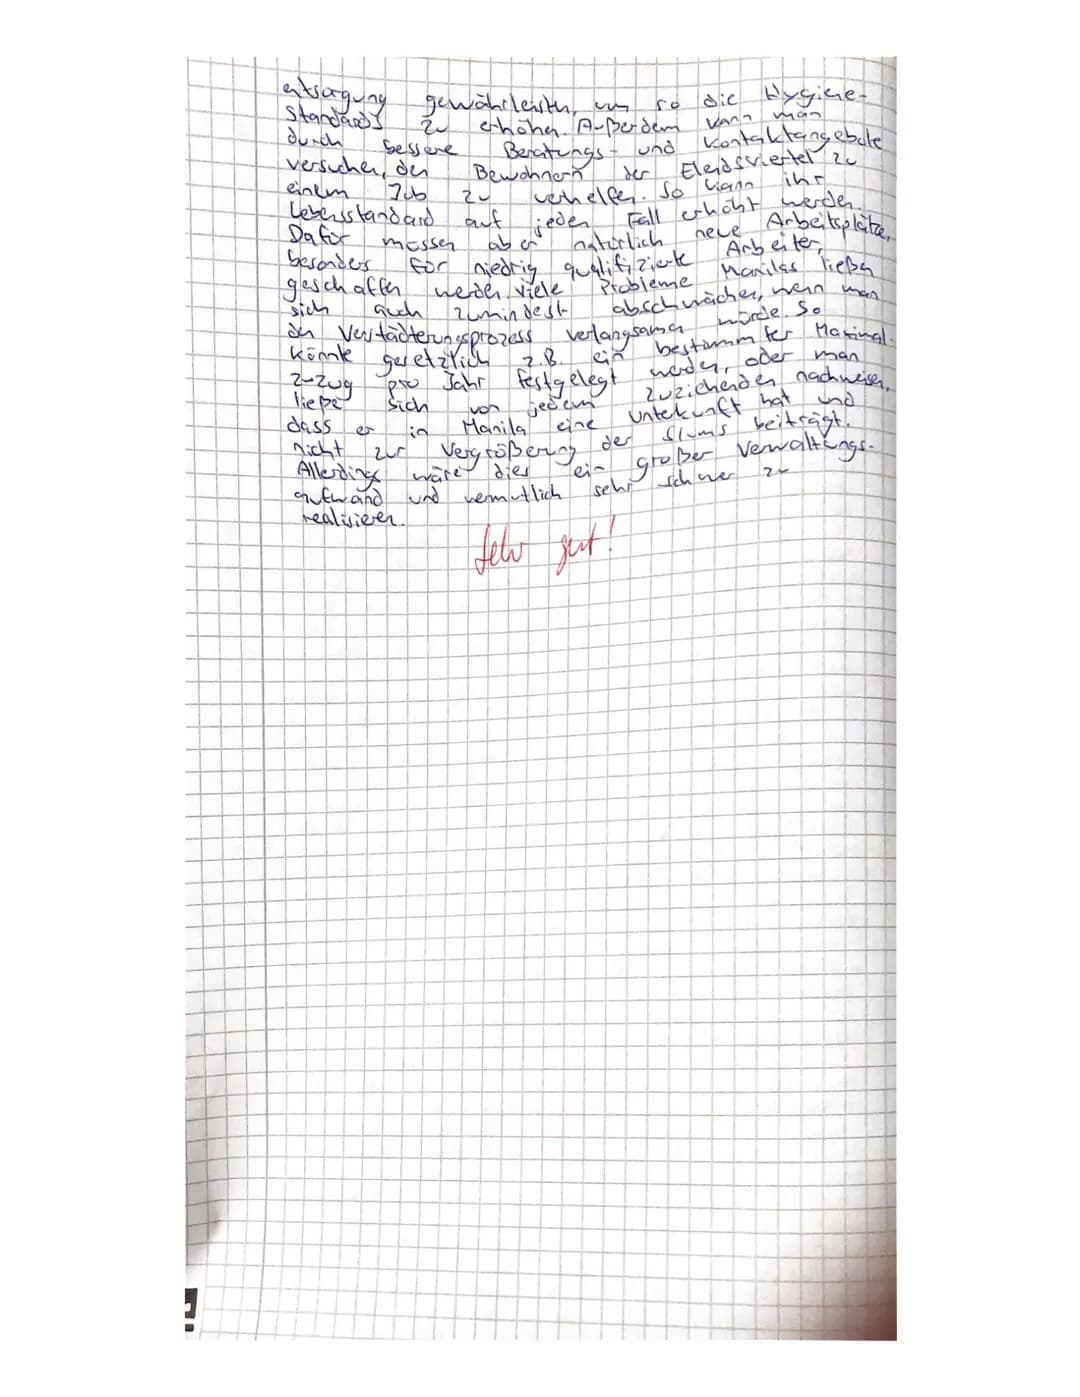 entsorgung gewährleisten, um so die Hygiene-
Standards zu erhöhen. Außerdem kann man
durch bessere Beratungs- und Kontaktangebote
versuchen, den Bewohnern der Elendsviertel zu
einem Job zu verhelfen. So kann ihr
Lebensstandard auf jeden Fall erhöht werden.
Dafür müssen aber natürlich neue Arbeitsplätze,
besonders für niedrig qualifizierte Arbeiter,
geschaffen werden. Viele Probleme Manilas ließen
sich auch zumindest abschwächen, wenn man
den Verstädterungsprozess verlangsamen würde. So
könnte gesetzlich z.B. ein bestimmter Maximal-
zuzug pro Jahr festgelegt werden, oder man
ließe sich von jedem Zuziehenden nachweisen,
dass er in Manila eine Unterkunft hat und
nicht zur Vergrößerung der Slums beiträgt.
Allerdings wäre dies ein großer Verwaltungs-
aufwand und vermutlich sehr schwer zu
realisieren.
Sehr gut!